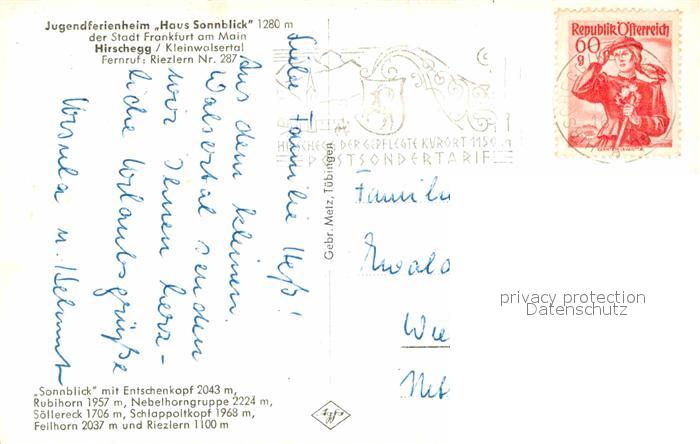 Jugendferienheim „Haus Sonnblick" 1280 m
der Stadt Frankfurt am Main
Hirschegg / Kleinwalsertal
Fernruf: Riezlern Nr. 287
Liebe Familie Heß!
Aus dem kleinen
Walsertal senden
wir Ihnen herz-
liche Urlaubsgrüße
Ursula u. Helmut
„Sonnblick" mit Entschenkopf 2043 m,
Rubihorn 1957 m, Nebelhorngruppe 2224 m,
Söllereck 1706 m, Schlappoltkopf 1968 m,
Fellhorn 2037 m und Riezlern 1100 m
Gebr. Metz, Tübingen
HIRSCHEGG DER GEPFLEGTE KURORT 1150 m
POSTSONDERTARIF
Republik Österreich
60
g
Famili
Wie
privacy protection
Datenschutz